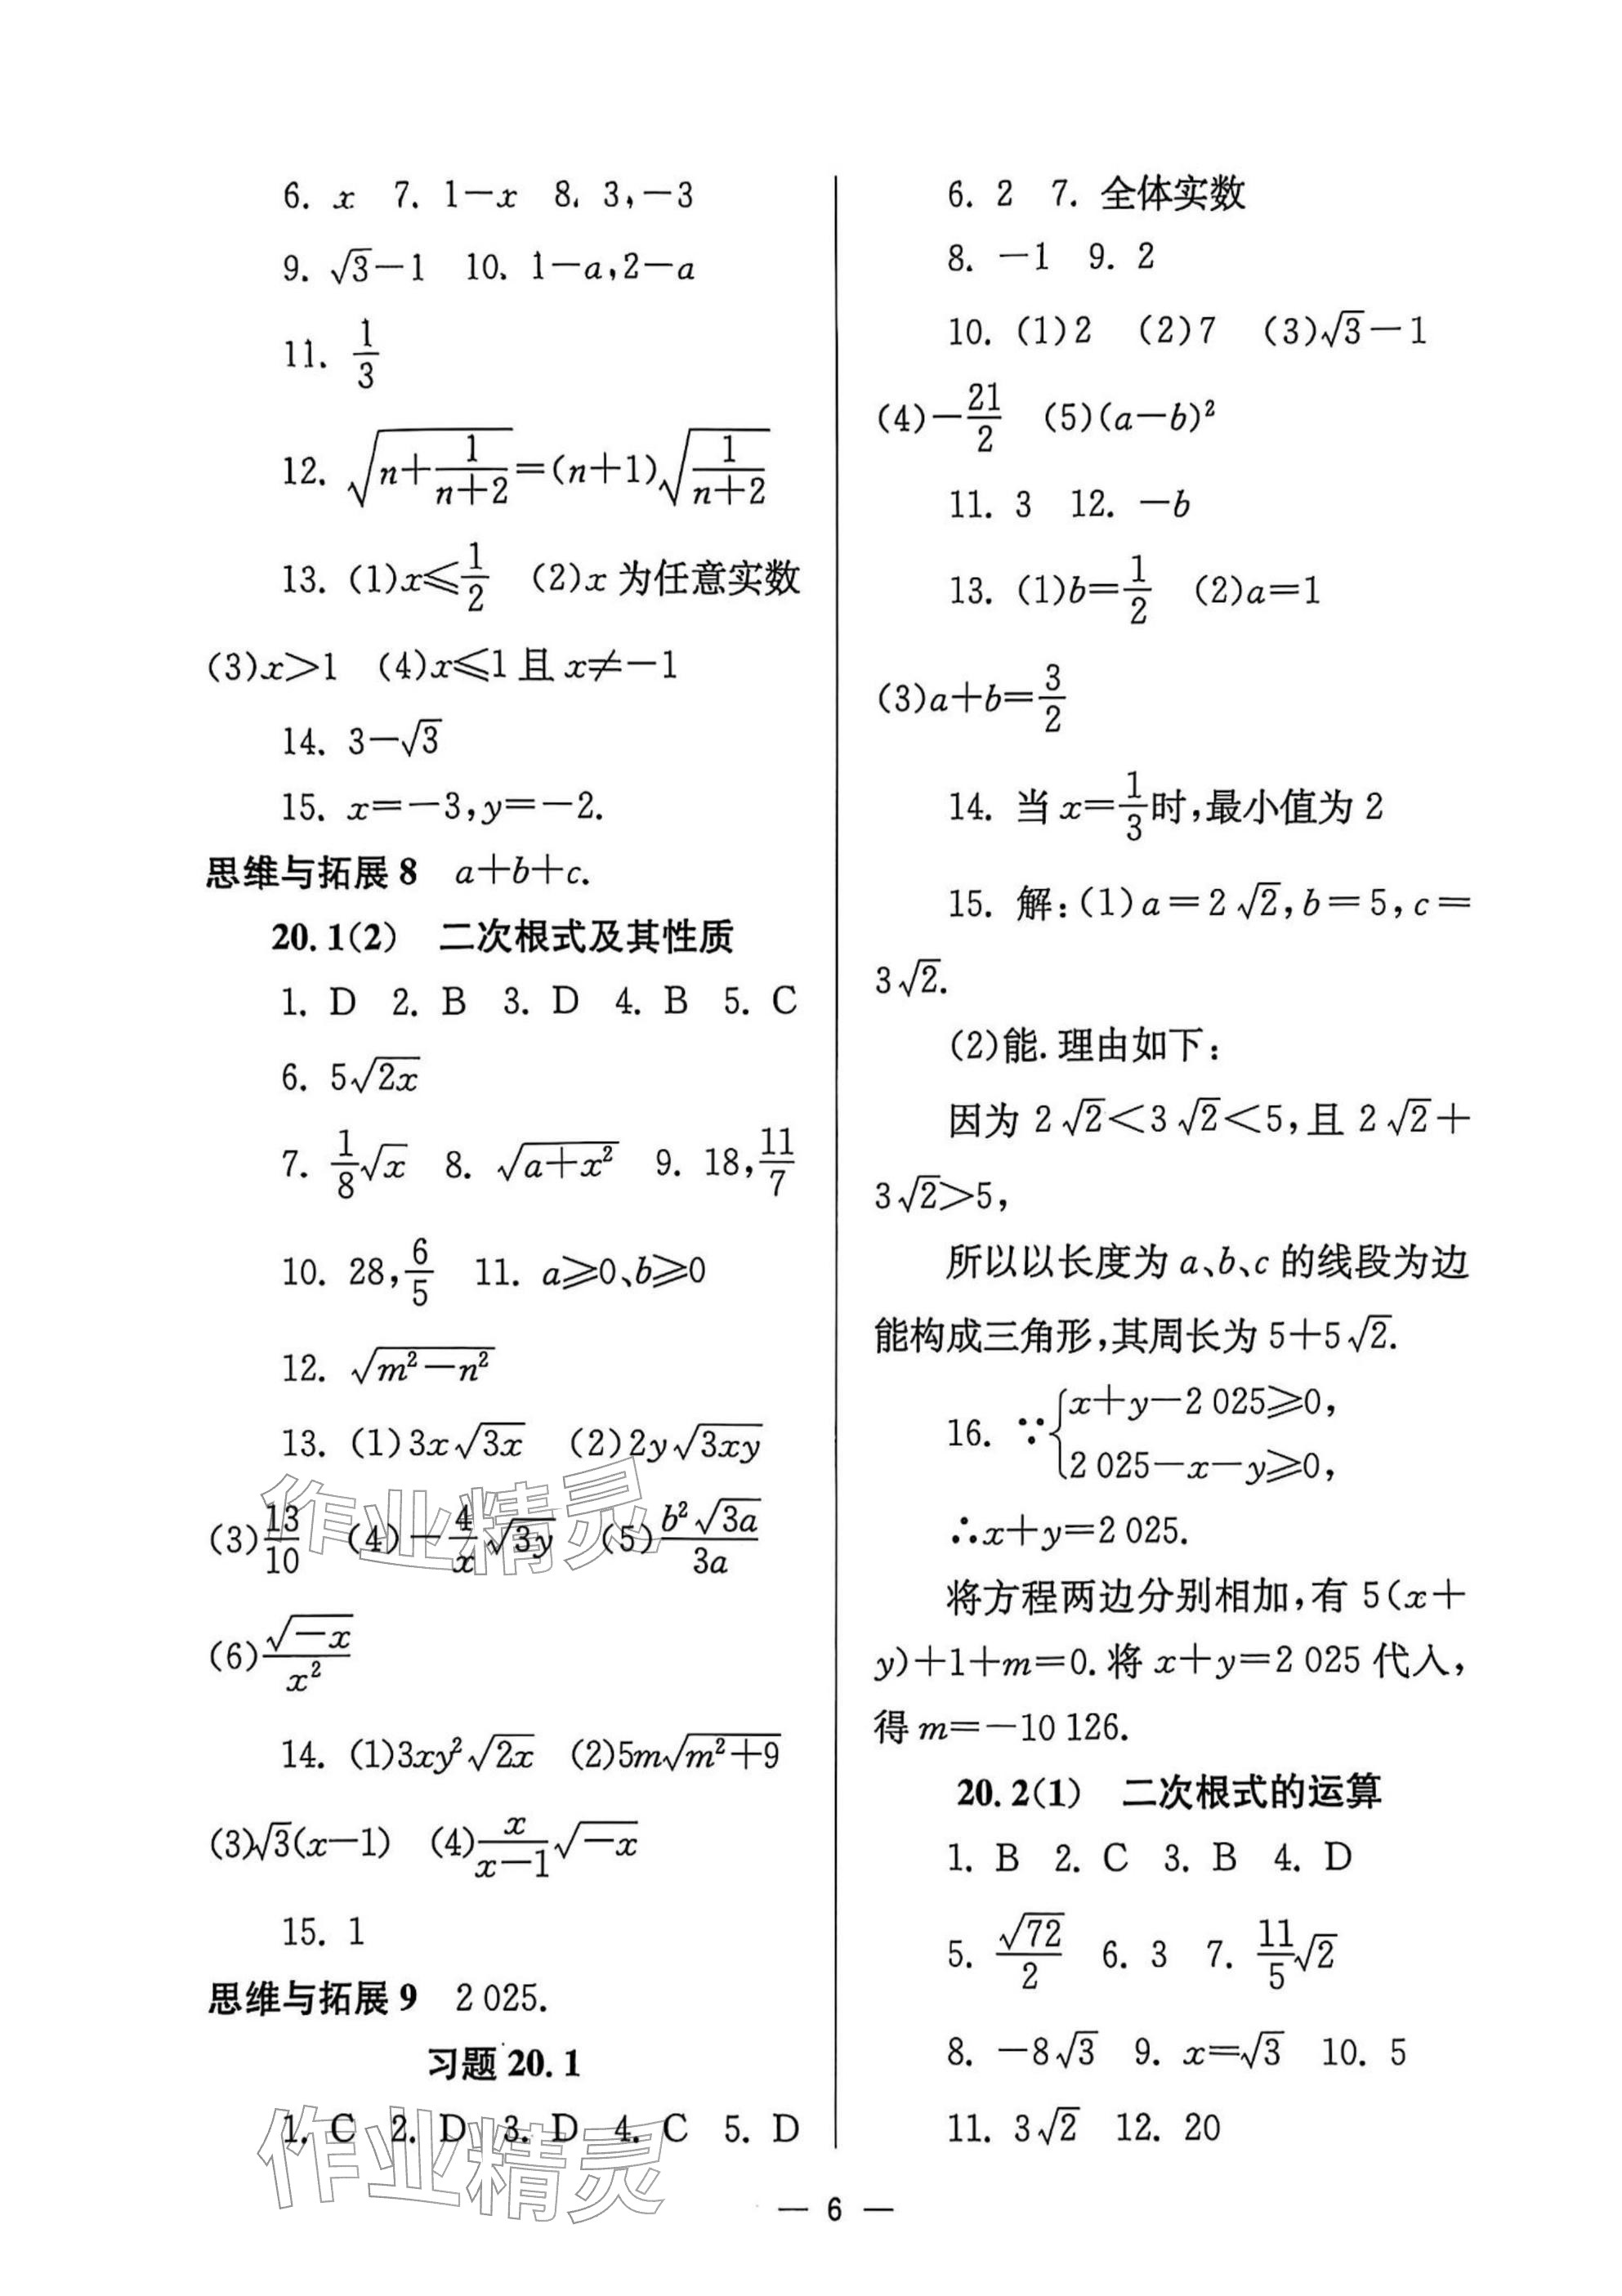 6. x 7. 1－x 8. 3，－3
9. √3－1 10. 1－a，2－a
11. 1/3
12. √(n＋1/(n＋2))＝(n＋1)√(1/(n＋2))
13. (1)x⩽1/2 (2)x 为任意实数
(3)x＞1 (4)x⩽1 且 x≠－1
14. 3－√3
15. x＝－3，y＝－2.
思维与拓展 8 a＋b＋c.
20.1(2) 二次根式及其性质
1. D 2. B 3. D 4. B 5. C
6. 5√(2x)
7. 1/8√x 8. √(a＋x²) 9. 18，11/7
10. 28，6/5 11. a⩾0、b⩾0
12. √(m²－n²)
13. (1)3x√(3x) (2)2y√(3xy)
(3)13/10 (4)－4/x√(3y) (5)b²√(3a)/3a
(6)√(－x)/x²
14. (1)3xy²√(2x) (2)5m√(m²＋9)
(3)√3(x－1) (4)x/(x－1)√(－x)
15. 1
思维与拓展 9 2 025.
习题 20.1
1. C 2. D 3. D 4. C 5. D
6. 2 7. 全体实数
8. －1 9. 2
10. (1)2 (2)7 (3)√3－1
(4)－21/2 (5)(a－b)²
11. 3 12. －b
13. (1)b＝1/2 (2)a＝1
(3)a＋b＝3/2
14. 当 x＝1/3时，最小值为 2
15. 解：(1)a＝2√2，b＝5，c＝
3√2.
(2)能. 理由如下：
因为 2√2＜3√2＜5，且 2√2＋
3√2＞5，
所以以长度为 a、b、c 的线段为边
能构成三角形，其周长为 5＋5√2.
16. ∵{x＋y－2 025⩾0，
2 025－x－y⩾0，
∴x＋y＝2 025.
将方程两边分别相加，有 5(x＋
y)＋1＋m＝0. 将 x＋y＝2 025 代入，
得 m＝－10 126.
20.2(1) 二次根式的运算
1. B 2. C 3. B 4. D
5. √72/2 6. 3 7. 11/5√2
8. －8√3 9. x＝√3 10. 5
11. 3√2 12. 20
— 6 —
作业精灵
作业精灵